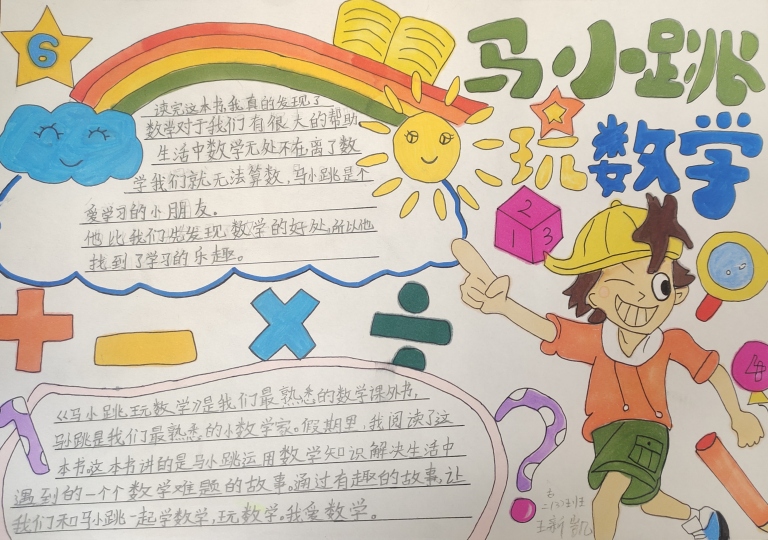 6
马小跳
玩数学
读完这本书,我真的发现了
数学对于我们有很大的帮助
生活中数学无处不在,离了数
学我们就无法算数,马小跳是个
爱学习的小朋友。
他比我们先发现数学的好处,所以他
找到了学习的乐趣。
2
1 3
+ - × ÷
《马小跳玩数学》是我们最熟悉的数学课外书,
马小跳是我们最熟悉的小数学家。假期里,我阅读了这
本书。这本书讲的是马小跳运用数学知识解决生活中
遇到的一个个数学难题的故事。通过有趣的故事,让
我们和马小跳一起学数学,玩数学。我爱数学。
1
?
4
王新凯